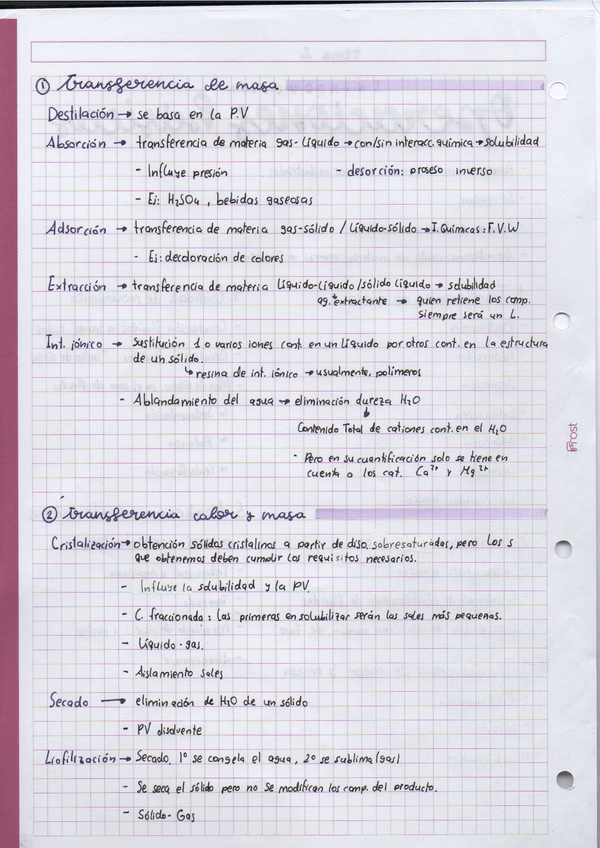 ① Transferencia de masa
Destilación → se basa en la P.V
Absorción → transferencia de materia gas-líquido → con/sin interacc. química → solubilidad
- Influye presión - desorción: proseso inverso
- Ej: H₂SO₄, bebidas gaseosas
Adsorción → transferencia de materia gas-sólido / líquido-sólido → I. Químicas: F.V.W
- Ej: decoloración de colores
Extracción → transferencia de materia líquido-líquido/sólido líquido → solubilidad
ag. extractante → quien retiene los comp.
siempre será un L.
Int. iónico → Sustitución 1 o varios iones cont. en un líquido por otros cont. en la estructura
de un sólido.
↳ resina de int. iónico → usualmente, polímeros
- Ablandamiento del agua → eliminación dureza H₂O
↓
Contenido Total de cationes cont. en el H₂O
- Pero en su cuantificación solo se tiene en
cuenta a los cat. Ca²⁺ y Mg²⁺
② Transferencia calor y masa
Cristalización → obtención sólidos cristalinos a partir de diso. sobresaturadas, pero los s
que obtenemos deben cumplir los requisitos necesarios.
- Influye la solubilidad y la PV.
- C. fraccionada: las primeras en solubilizar serán las sales más pequeñas.
- Líquido-gas.
- Aislamiento sales
Secado → eliminación de H₂O de un sólido
- PV disolvente
Liofilización → Secado. 1º se congela el agua, 2º se sublima (gas)
- Se seca el sólido pero no se modifican los comp. del producto.
- Sólido-Gas
Prost